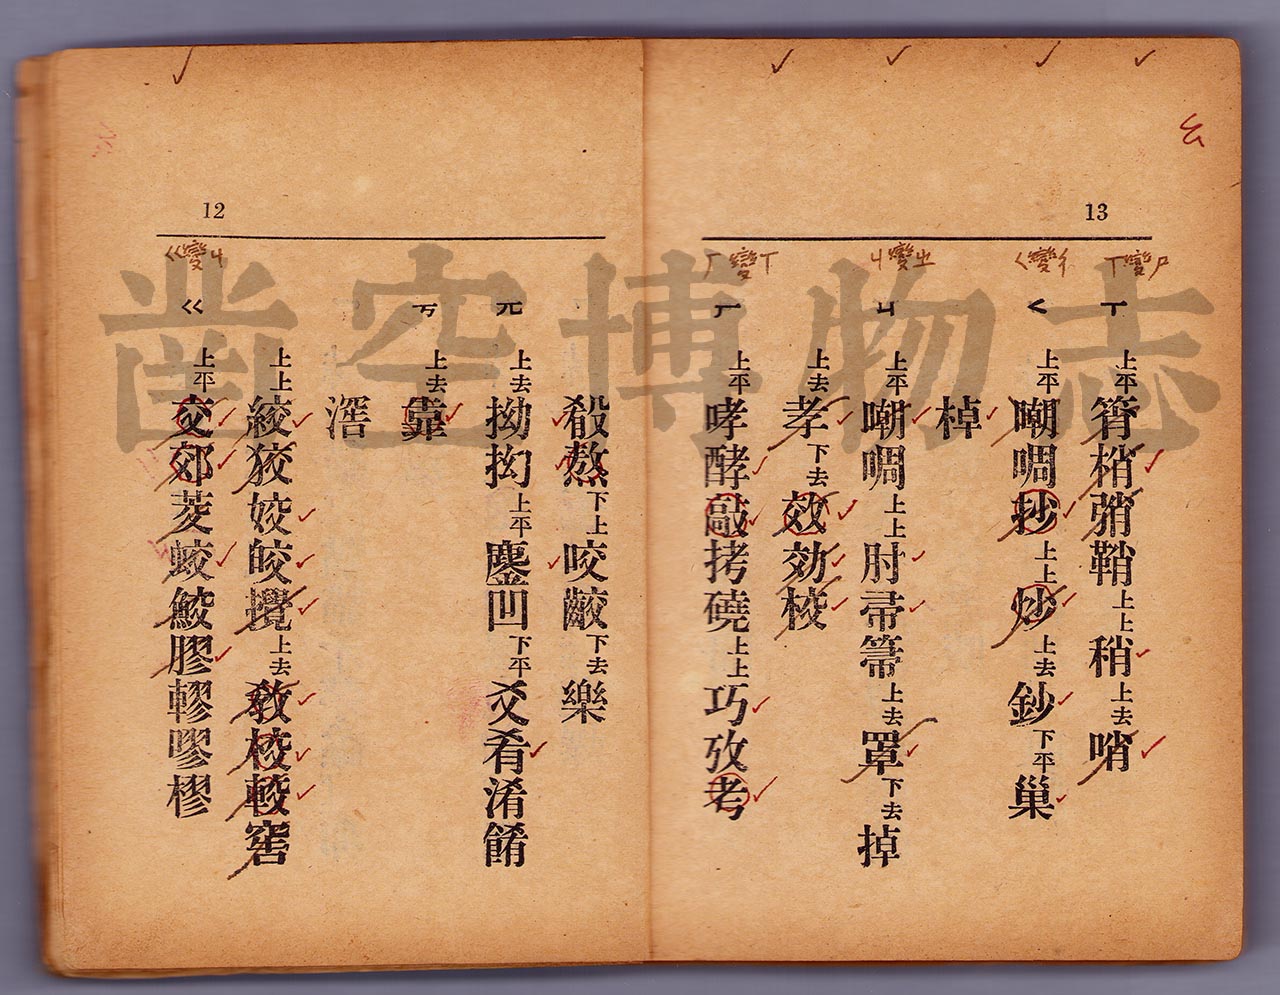 12
ㄍ變ㄐ
ㄍ 上平 交郊茭蛟鮫膠轇嘐樛
上上 絞狡姣皎攪 上去 敎校較窖
滘
ㄎ 上去 靠
兀 上去 拗抝 上平 鏖凹 下平 爻肴淆餚
殽熬 下上 咬齩 下去 樂
13
ㄠ
ㄏ變ㄒ
ㄏ 上平 哮酵敲拷磽 上上 巧攷考
上去 孝 下去 效効校
ㄐ變ㄓ
ㄐ 上平 嘲啁 上上 肘帚箒 上去 罩 下去 掉
棹
ㄑ變ㄔ
ㄑ 上平 嘲啁抄 上上 炒 上去 鈔 下平 巢
ㄒ變ㄕ
ㄒ 上平 筲梢弰鞘 上上 稍 上去 哨
凿空博物志